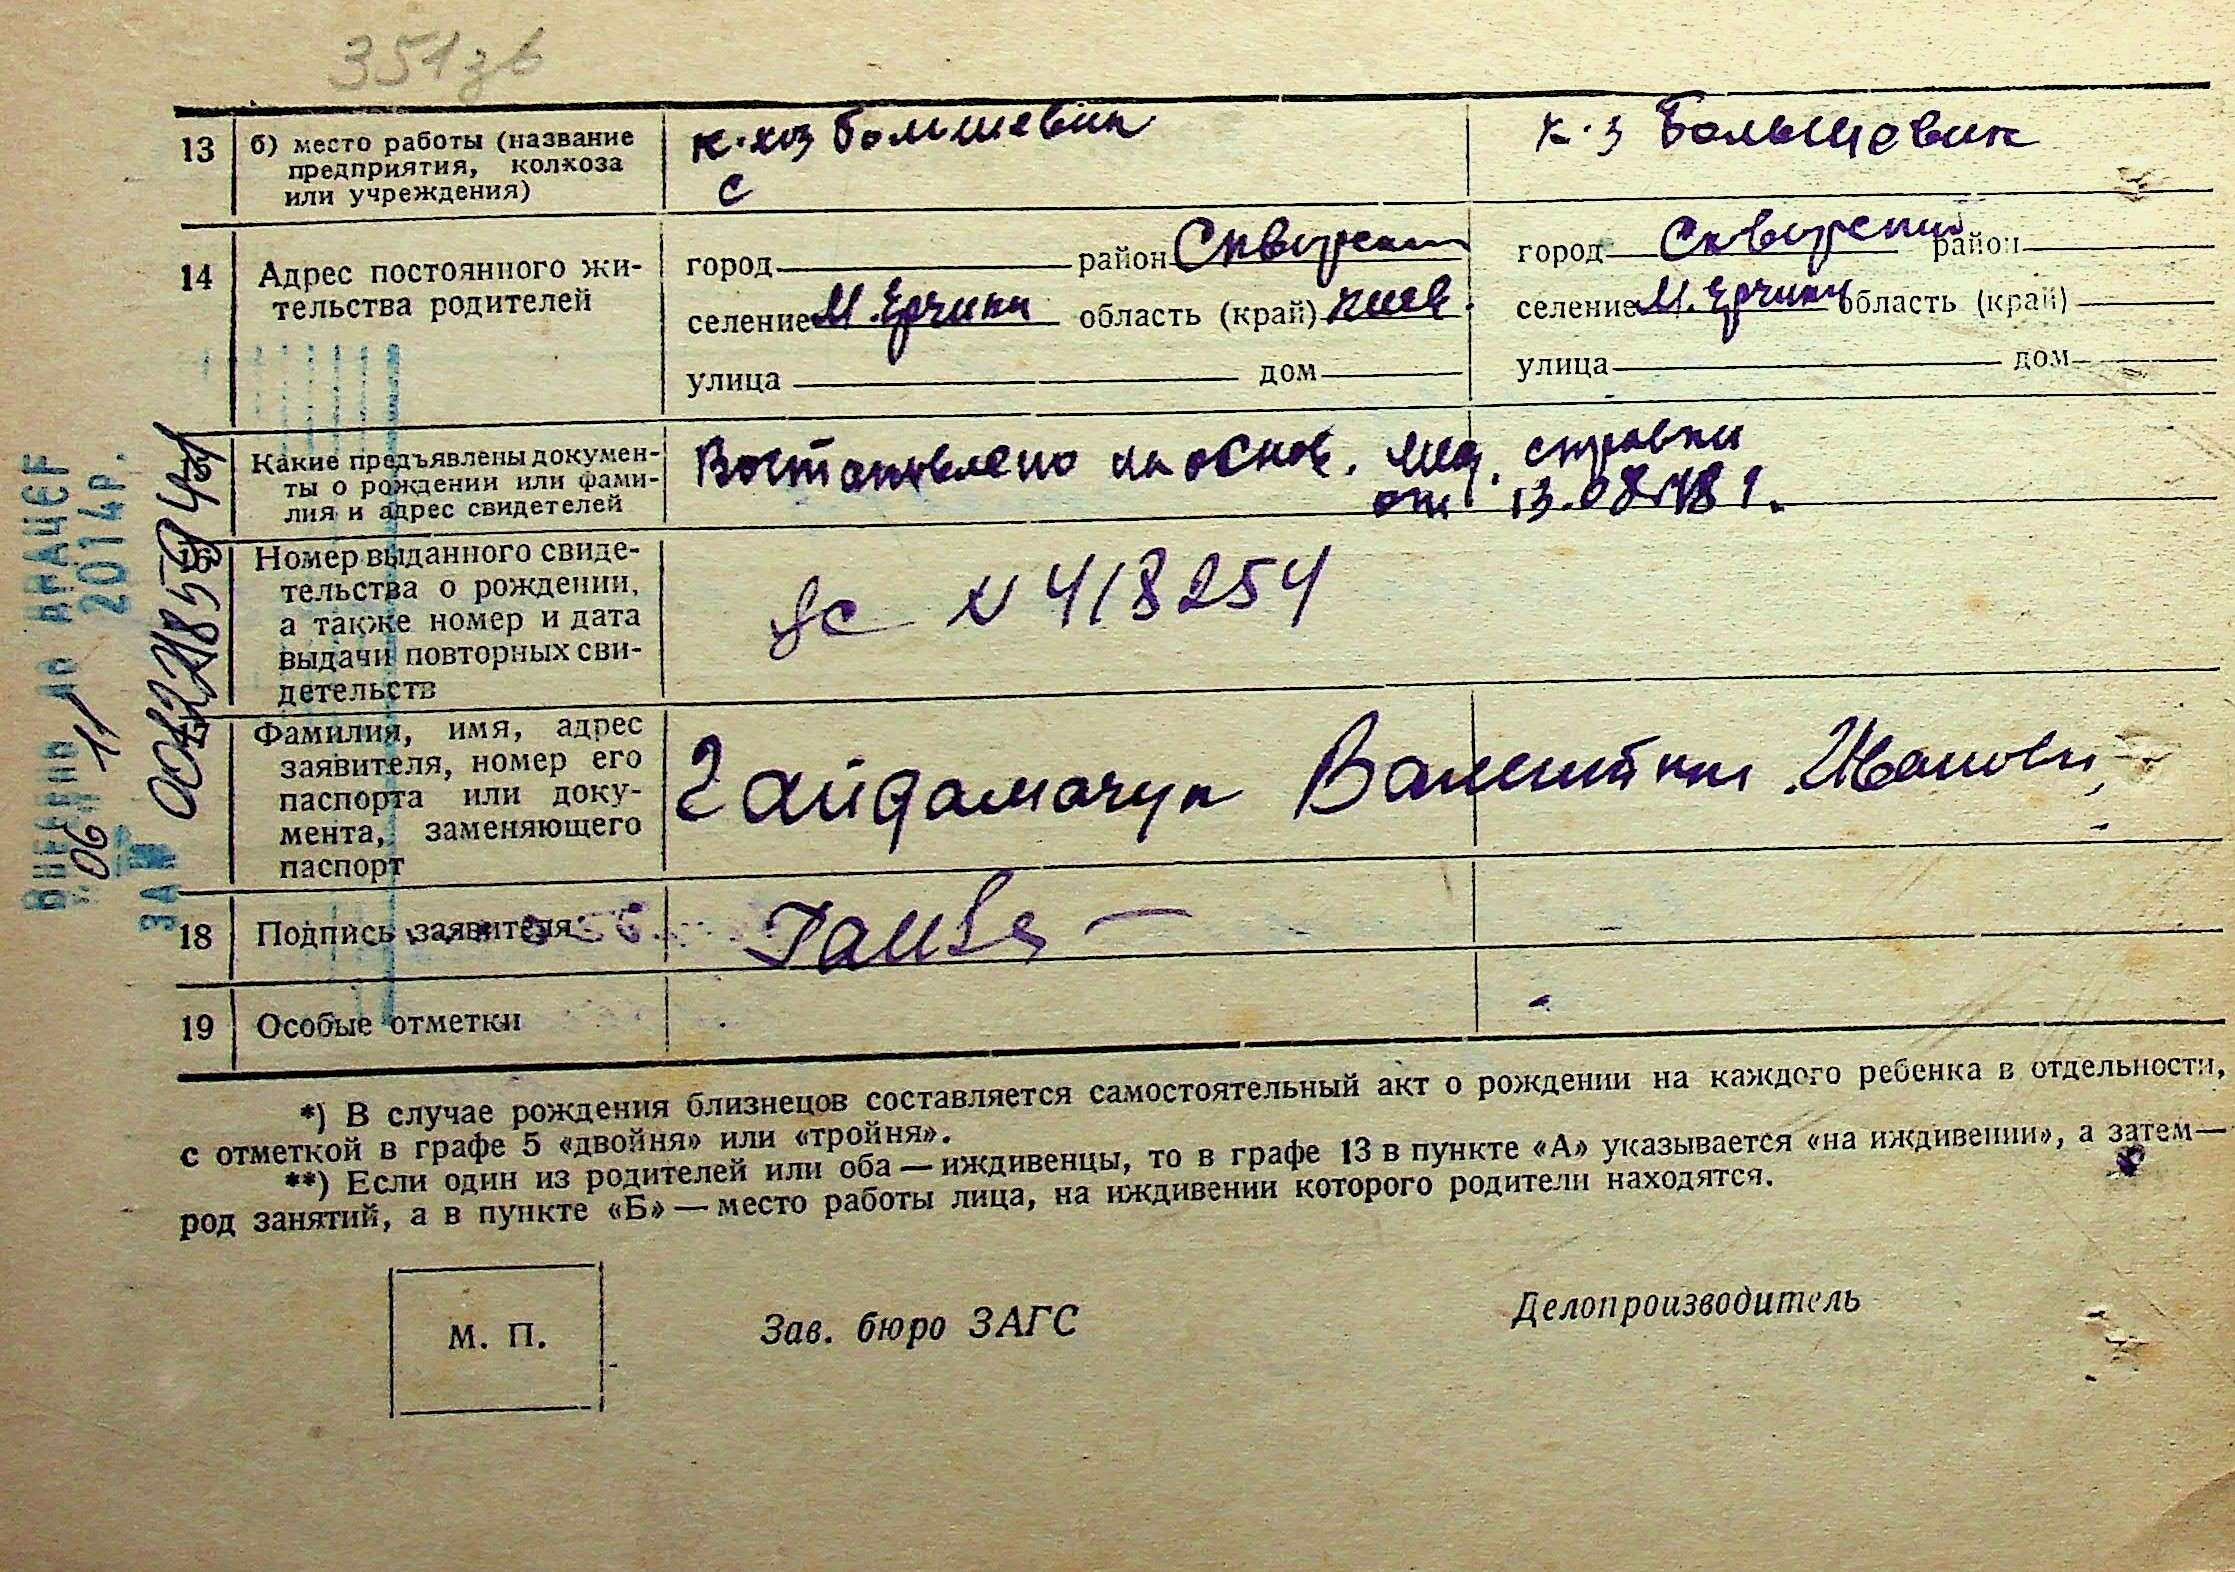 351 зв
13 б) место работы (название к-хоз Большевик к-з Большевик
предприятия, колхоза
или учреждения) с
14 Адрес постоянного жи- город район Сквирский город Сквирский район
тельства родителей селение М. Ерчики область (край) киев. селение М. Ерчики область (край)
улица дом улица дом
Какие предъявлены докумен- Востановлено на основ. мед. справки
ты о рождении или фами- от 13.08.
лия и адрес свидетелей
Номер выданного свиде-
тельства о рождении, N 418254
а также номер и дата
выдачи повторных сви-
детельств
Фамилия, имя, адрес
заявителя, номер его Гайдамачук Валентина Ивановн
паспорта или доку-
мента, заменяющего
паспорт
18 Подпись заявителя
19 Особые отметки
*) В случае рождения близнецов составляется самостоятельный акт о рождении на каждого ребенка в отдельности,
с отметкой в графе 5 «двойня» или «тройня».
**) Если один из родителей или оба — иждивенцы, то в графе 13 в пункте «А» указывается «на иждивении», а затем —
род занятий, а в пункте «Б» — место работы лица, на иждивении которого родители находятся.
М. П. Зав. бюро ЗАГС Делопроизводитель
Внесено до ДРАЦСГ
06 11 2014р.
ЗА №